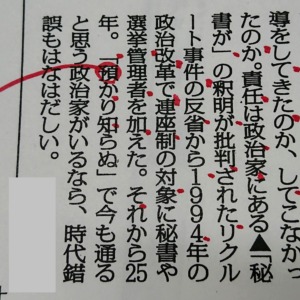 導をしてきたのか、してこなかっ
たのか。責任は政治家にある▲「秘
書が」の釈明が批判されたリクル
ート事件の反省から1994年の
政治改革で連座制の対象に秘書や
選挙管理者を加えた。それから25
年。「預かり知らぬ」で今も通る
と思う政治家がいるなら、時代錯
誤もはなはだしい。